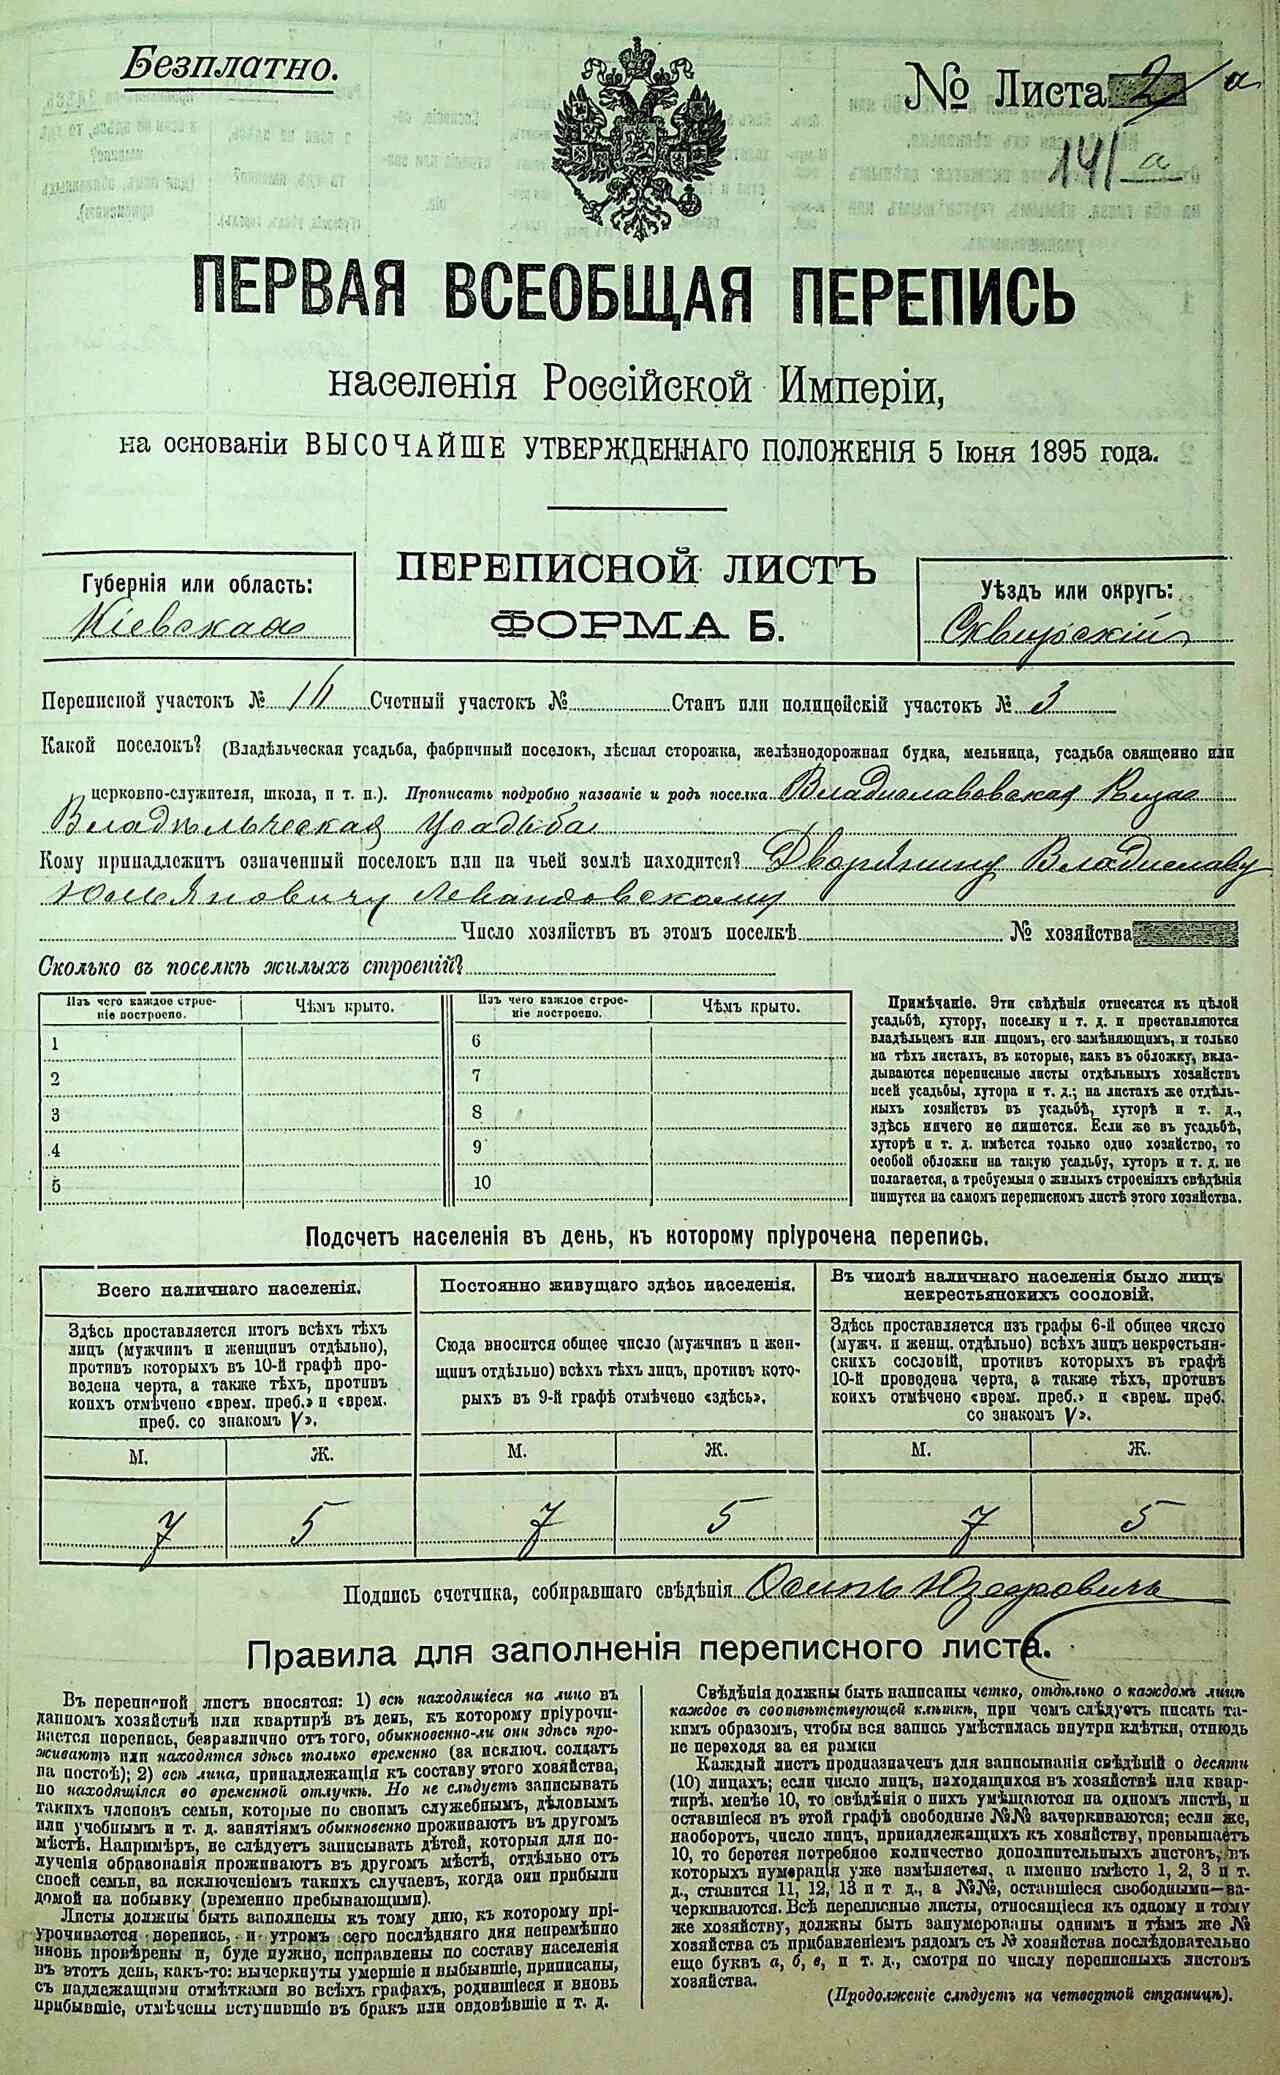 Безплатно.
№ Листа 2 а
141 а
ПЕРВАЯ ВСЕОБЩАЯ ПЕРЕПИСЬ
населенія Россійской Имперіи,
на основаніи ВЫСОЧАЙШЕ УТВЕРЖДЕННАГО ПОЛОЖЕНІЯ 5 Іюня 1895 года.
Губернія или область:
Кіевская
ПЕРЕПИСНОЙ ЛИСТЪ
ФОРМА Б.
Уѣздъ или округъ:
Сквирскій
Переписной участокъ № Счетный участокъ № Станъ или полицейскій участокъ № 3
Какой поселокъ? (Владѣльческая усадьба, фабричный поселокъ, лѣсная сторожка, желѣзнодорожная будка, мельница, усадьба священно или
церковно-служителя, школа, и т. п.). Прописать подробно названіе и родъ поселка Владиславовская
Владѣльческая Усадьба
Кому принадлежитъ означенный поселокъ или на чьей землѣ находится? Дворянину Владиславу
Юльяновичу Левандовскому
Число хозяйствъ въ этомъ поселкѣ № хозяйства
Сколько въ поселкѣ жилыхъ строеній?
Изъ чего каждое строе-
ніе построено.
Чѣмъ крыто.
Изъ чего каждое строе-
ніе построено.
Чѣмъ крыто.
1
2
3
4
5
6
7
8
9
10
Примѣчаніе. Эти свѣдѣнія относятся къ цѣлой
усадьбѣ, хутору, поселку и т. д. и преставляются
владѣльцемъ или лицомъ, его замѣняющимъ, и только
на тѣхъ листахъ, въ которые, какъ въ обложку, вкла-
дываются переписные листы отдѣльныхъ хозяйствъ
всей усадьбы, хутора и т. д.; на листахъ же отдѣль-
ныхъ хозяйствъ въ усадьбѣ, хуторѣ и т. д.,
здѣсь ничего не пишется. Если же въ усадьбѣ,
хуторѣ и т. д. имѣется только одно хозяйство, то
особой обложки на такую усадьбу, хуторъ и т. д. не
полагается, а требуемыя о жилыхъ строеніяхъ свѣдѣнія
пишутся на самомъ переписномъ листѣ этого хозяйства.
Подсчетъ населенія въ день, къ которому пріурочена перепись.
Всего наличнаго населенія.
Здѣсь проставляется итогъ всѣхъ тѣхъ
лицъ (мужчинъ и женщинъ отдѣльно),
противъ которыхъ въ 10-й графѣ про-
ведена черта, а также тѣхъ, противъ
коихъ отмѣчено «врем. преб.» и «врем.
преб. со знакомъ V».
М. Ж.
7 5
Постоянно живущаго здѣсь населенія.
Сюда вносится общее число (мужчинъ и жен-
щинъ отдѣльно) всѣхъ тѣхъ лицъ, противъ кото-
рыхъ въ 9-й графѣ отмѣчено «здѣсь».
М. Ж.
7 5
Въ числѣ наличнаго населенія было лицъ
некрестьянскихъ сословій.
Здѣсь проставляется изъ графы 6-й общее число
(мужч. и женщ. отдѣльно) всѣхъ лицъ некрестьян-
скихъ сословій, противъ которыхъ въ графѣ
10-й проведена черта, а также тѣхъ, противъ
коихъ отмѣчено «врем. преб.» и «врем. преб.
со знакомъ V».
М. Ж.
7 5
Подпись счетчика, собиравшаго свѣдѣнія Осипъ Юзефовичъ
Правила для заполненія переписного листа.
Въ переписной листъ вносятся: 1) всѣ находящіеся на лицо въ
данномъ хозяйствѣ или квартирѣ въ день, къ которому пріурочи-
вается перепись, безразлично отъ того, обыкновенно-ли они здѣсь про-
живаютъ или находятся здѣсь только временно (за исключ. солдатъ
на постоѣ); 2) всѣ лица, принадлежащія къ составу этого хозяйства,
но находящіяся во временной отлучкѣ. Но не слѣдуетъ записывать
такихъ членовъ семьи, которые по своимъ служебнымъ, дѣловымъ
или учебнымъ и т. д. занятіямъ обыкновенно проживаютъ въ другомъ
мѣстѣ. Напримѣръ, не слѣдуетъ записывать дѣтей, которыя для по-
лученія образованія проживаютъ въ другомъ мѣстѣ, отдѣльно отъ
своей семьи, за исключеніемъ такихъ случаевъ, когда они прибыли
домой на побывку (временно пребывающими).
Листы должны быть заполнены къ тому дню, къ которому прі-
урочивается перепись, и утромъ сего послѣдняго дня непремѣнно
вновь провѣрены и, буде нужно, исправлены по составу населенія
въ этотъ день, какъ-то: вычеркнуты умершіе и выбывшіе, приписаны,
съ надлежащими отмѣтками во всѣхъ графахъ, родившіеся и вновь
прибывшіе, отмѣчены вступившіе въ бракъ или овдовѣвшіе и т. д.
Свѣдѣнія должны быть написаны четко, отдѣльно о каждомъ лицѣ
каждое въ соотвѣтствующей клѣткѣ, при чемъ слѣдуетъ писать та-
кимъ образомъ, чтобы вся запись умѣстилась внутри клѣтки, отнюдь
не переходя за ея рамки
Каждый листъ предназначенъ для записыванія свѣдѣній о десяти
(10) лицахъ; если число лицъ, находящихся въ хозяйствѣ или квар-
тирѣ, менѣе 10, то свѣдѣнія о нихъ умѣщаются на одномъ листѣ, и
оставшіеся въ этой графѣ свободные №№ зачеркиваются; если же,
наоборотъ, число лицъ, принадлежащихъ къ хозяйству, превышаетъ
10, то берется потребное количество дополнительныхъ листовъ, въ
которыхъ нумерація уже измѣняется, а именно вмѣсто 1, 2, 3 и т.
д., ставится 11, 12, 13 и т. д., а №№, оставшіеся свободными—за-
черкиваются. Всѣ переписные листы, относящіеся къ одному и тому
же хозяйству, должны быть занумерованы однимъ и тѣмъ же №
хозяйства съ прибавленіемъ рядомъ съ № хозяйства послѣдовательно
еще буквъ а, б, в, и т. д., смотря по числу переписныхъ листовъ
хозяйства.
(Продолженіе слѣдуетъ на четвертой страницѣ).